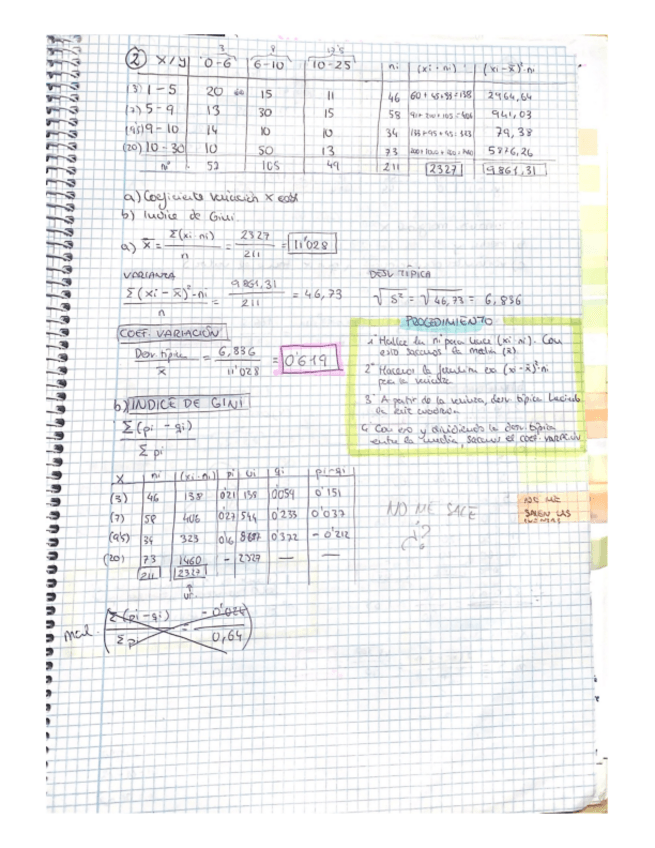 3 8 17'5
② X/Y 0-6 6-10 10-25 ni (xi·ni) (xi-x̄)²·ni
(3) 1-5 20 15 11 46 60+45+33=138 2964,64
(7) 5-9 13 30 15 58 =406 941,03
(9'5) 9-10 14 10 10 34 =323 79,38
(20) 10-30 10 50 13 73 5876,26
nº 53 105 49 211 2327 9861,31
a) Coeficiente variación X
b) Indice de Gini
a) x̄ = Σ(xi·ni) / n = 2327 / 211 = 11'028
VARIANZA
Σ(xi-x̄)²·ni / n = 9861,31 / 211 = 46,73
DESV TÍPICA
√S² = √46,73 = 6,836
COEF. VARIACIÓN
Desv típica / x̄ = 6,836 / 11'028 = 0'619
PROCEDIMIENTO
1º Hallar la ni para hacer (xi·ni). Con
esto sacamos la media (x̄).
2º Hacemos la fórmula de (xi-x̄)²·ni
para la varianza
3º A partir de la varianza, desv. típica haciendo
la raíz cuadrada
4 Con eso y dividiendo la desv. típica
entre la media, sacamos el coef. variación
b) INDICE DE GINI
Σ(pi - qi)
Σ pi
X ni (xi·ni) pi ui qi pi-qi
(3) 46 138 0'21 138 0'059 0'151
(7) 58 406 0'27 544 0'233 0'037
(9'5) 34 323 0'16 867 0'372 -0'212
(20) 73 1460 - 2327 — —
211 2327
ui
NO ME SALE
¿?
NO ME
SALEN LAS
CUENTAS
mal. (Σ(pi-qi) / Σ pi = -0'024 / 0,64)